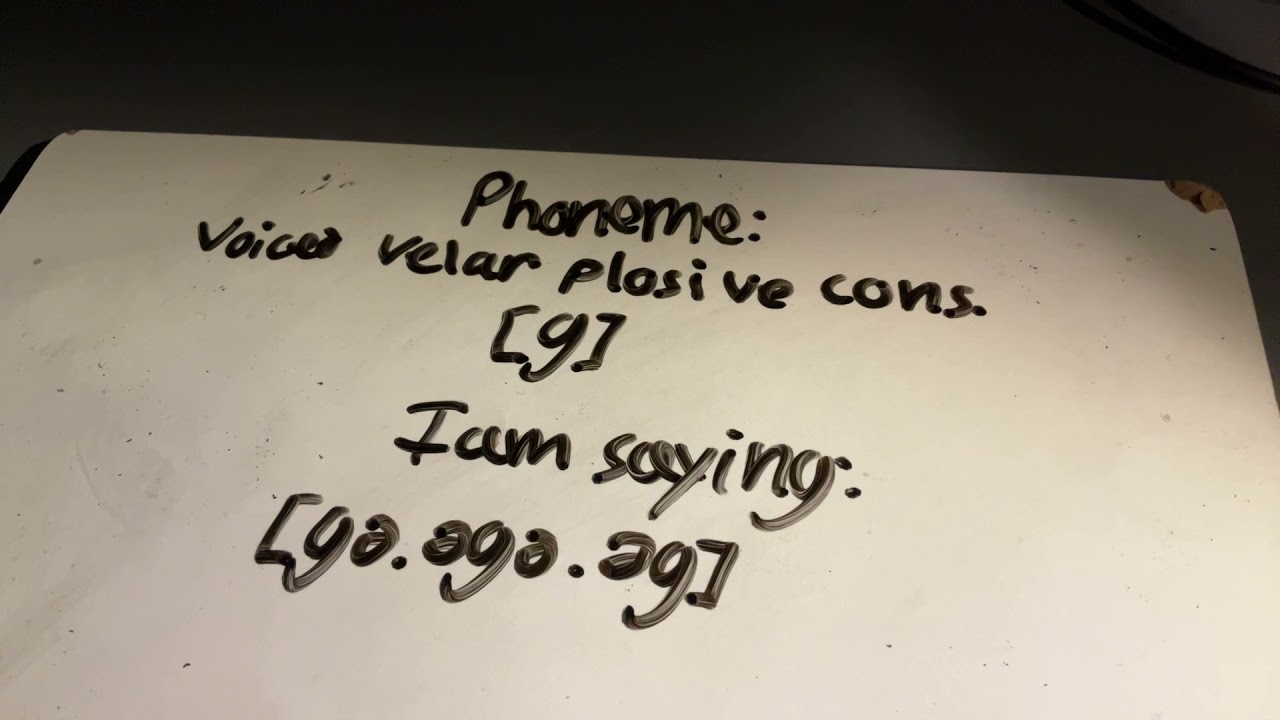 Phoneme:
Voiced velar plosive cons.
[g]
I am saying:
[gə.əgə.əg]